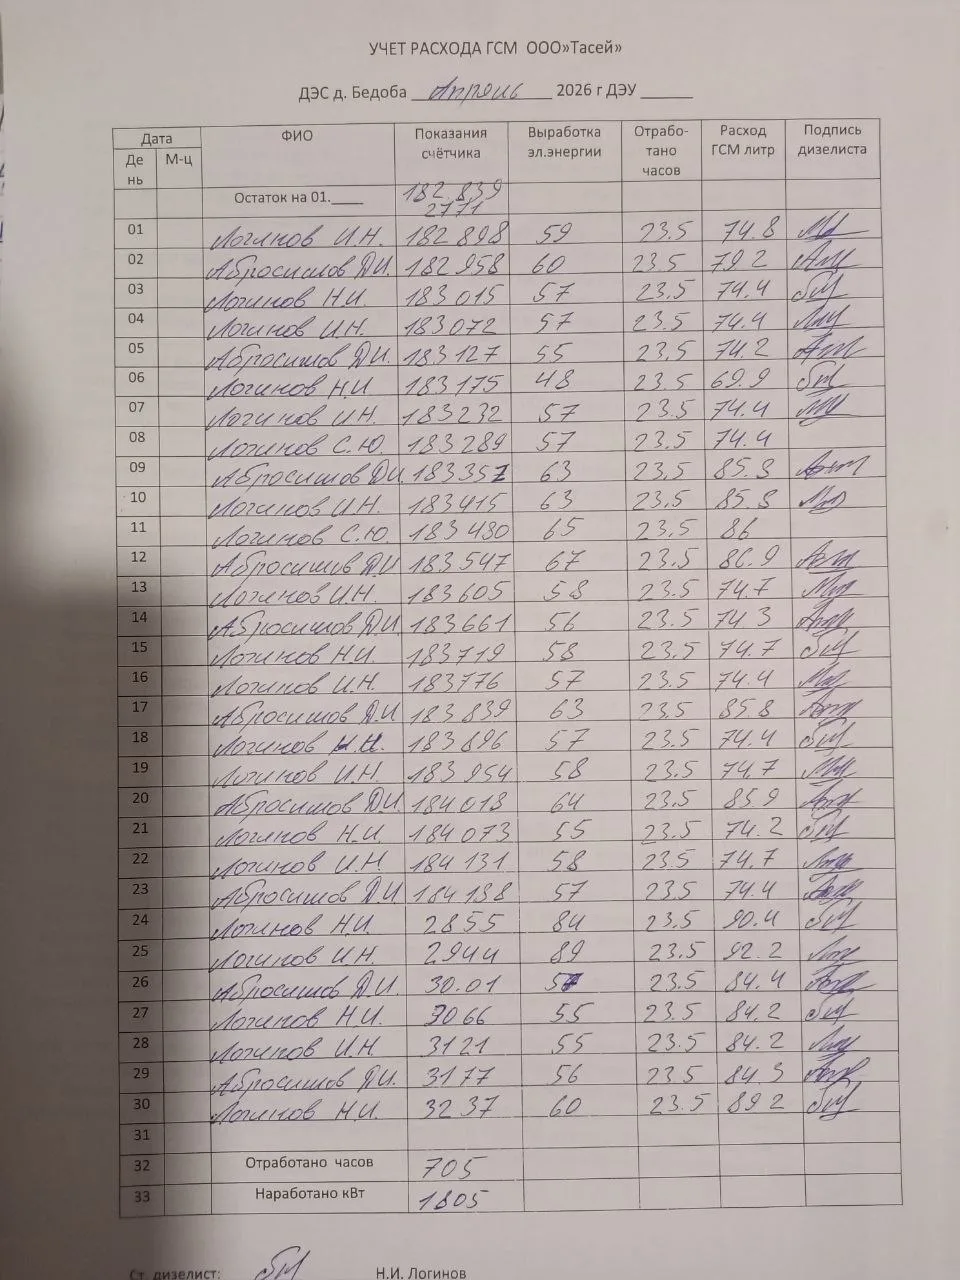 УЧЕТ РАСХОДА ГСМ ООО»Тасей»
ДЭС д. Бедоба Апрель 2026 г ДЭУ ______
Дата ФИО Показания счётчика Выработка эл.энергии Отрабо-тано часов Расход ГСМ литр Подпись дизелиста
День М-ц
Остаток на 01.____ 182 839
2771
01 Логинов И.Н. 182 898 59 23.5 74.8
02 Абросимов Д.И. 182 958 60 23.5 79.2
03 Логинов Н.И. 183 015 57 23.5 74.4
04 Логинов И.Н. 183 072 57 23.5 74.4
05 Абросимов Д.И. 183 127 55 23.5 74.2
06 Логинов Н.И 183 175 48 23.5 69.9
07 Логинов И.Н. 183 232 57 23.5 74.4
08 Логинов С.Ю. 183 289 57 23.5 74.4
09 Абросимов Д.И. 183 357 63 23.5 85.8
10 Логинов И.Н. 183 415 63 23.5 85.8
11 Логинов С.Ю. 183 430 65 23.5 86
12 Абросимов Д.И 183 547 67 23.5 86.9
13 Логинов И.Н. 183 605 58 23.5 74.7
14 Абросимов Д.И. 183 661 56 23.5 74.3
15 Логинов Н.И. 183 719 58 23.5 74.7
16 Логинов И.Н. 183 776 57 23.5 74.4
17 Абросимов Д.И 183 839 63 23.5 85.8
18 Логинов Н.И. 183 896 57 23.5 74.4
19 Логинов И.Н. 183 954 58 23.5 74.7
20 Абросимов Д.И. 184 018 64 23.5 85.9
21 Логинов Н.И. 184 073 55 23.5 74.2
22 Логинов И.Н 184 131 58 23.5 74.7
23 Абросимов Д.И 184 188 57 23.5 74.4
24 Логинов Н.И. 2855 84 23.5 90.4
25 Логинов И.Н. 2944 89 23.5 92.2
26 Абросимов Д.И. 30.01 57 23.5 84.4
27 Логинов Н.И. 3066 55 23.5 84.2
28 Логинов И.Н. 3121 55 23.5 84.2
29 Абросимов Д.И. 3177 56 23.5 84.3
30 Логинов Н.И. 3237 60 23.5 89.2
31
32 Отработано часов 705
33 Наработано кВт 1805
Ст. дизелист: Н.И. Логинов